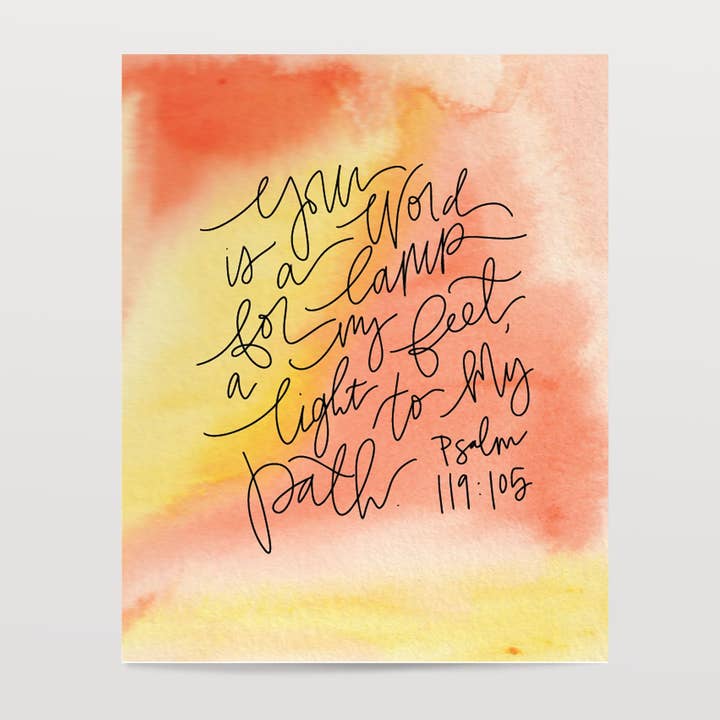 your word
is a lamp
for my feet,
a light to My
path.
Psalm
119:105